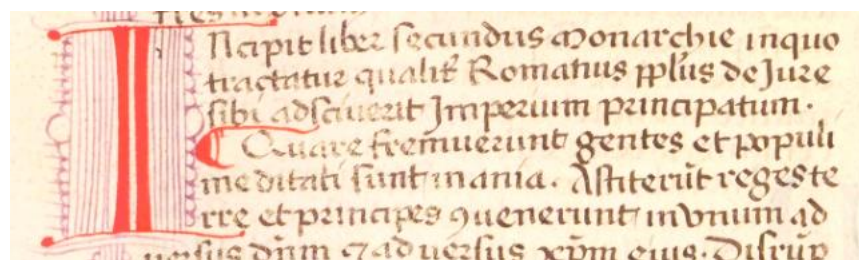 INcipit liber secundus Monarchie in quo
tractatur qualit̃ Romanus pp̃lus de Jure
sibi adsciuerit Imperium principatum.
Quare fremuerunt gentes et populi
meditati sunt inania. Astiterũt reges te
rre et principes ꝯuenerunt in vnum ad
uersus dñm ⁊ aduersus xp̃m eius. Dirũp